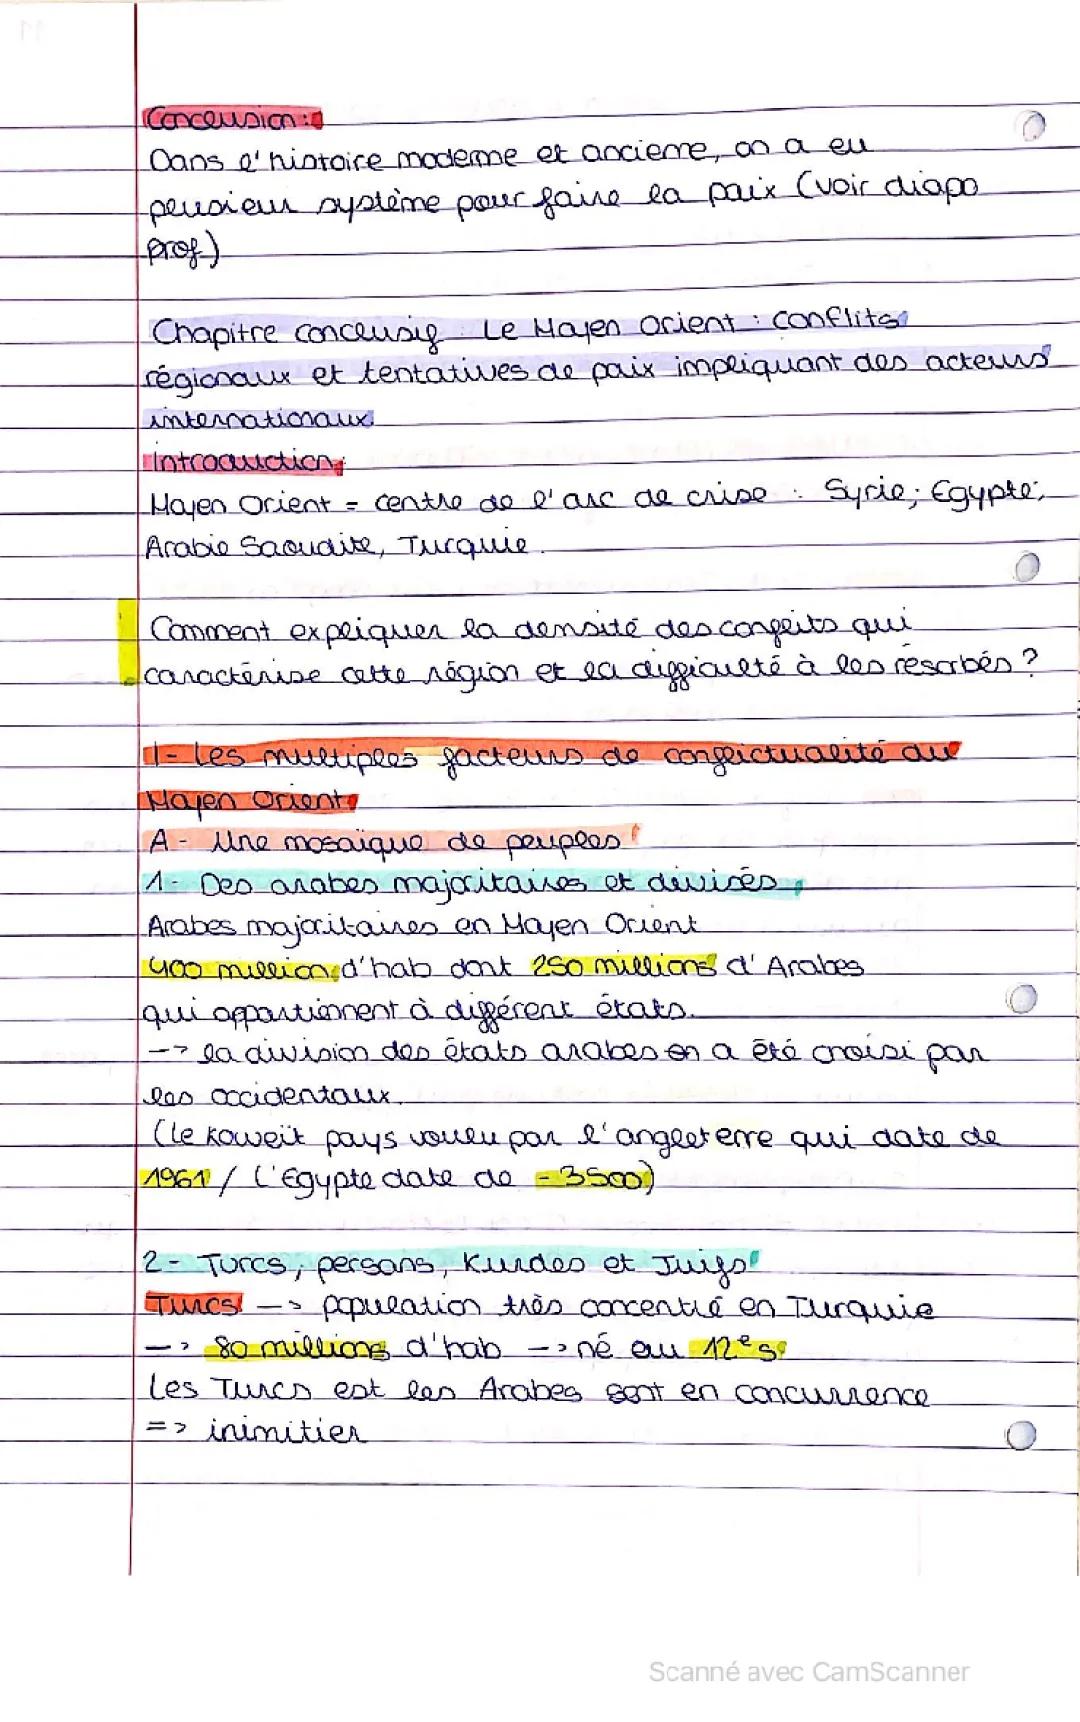 Conclusion :
Dans l'histoire moderne et ancienne, on a eu
plusieur système pour faire la paix (voir diapo
prof.)
Chapitre conclusif : Le Moyen Orient : conflits
régionaux et tentatives de paix impliquant des acteurs
internationaux
Introduction :
Moyen Orient = centre de l'arc de crise : Syrie, Egypte,
Arabie Saoudite, Turquie.
Comment expliquer la densité des conflits qui
caractérise cette région et la difficulté à les résorbés ?
1- Les multiples facteurs de conflictualité au
Moyen Orient
A - Une mosaïque de peuples
1- Des arabes majoritaires et divisés
Arabes majoritaires en Moyen Orient
400 millions d'hab dont 250 millions d'Arabes
qui appartiennent à différent états.
-> la division des états arabes en a été choisi par
les occidentaux.
(Le Koweït pays voulu par l'angleterre qui date de
1961 / L'Egypte date de -3500)
2- Turcs, persans, Kurdes et Juifs
Turcs -> population très concentré en Turquie
-> 80 millions d'hab -> né au 12e s
Les Turcs est les Arabes sont en concurrence
=> inimitier
Scanné avec CamScanner